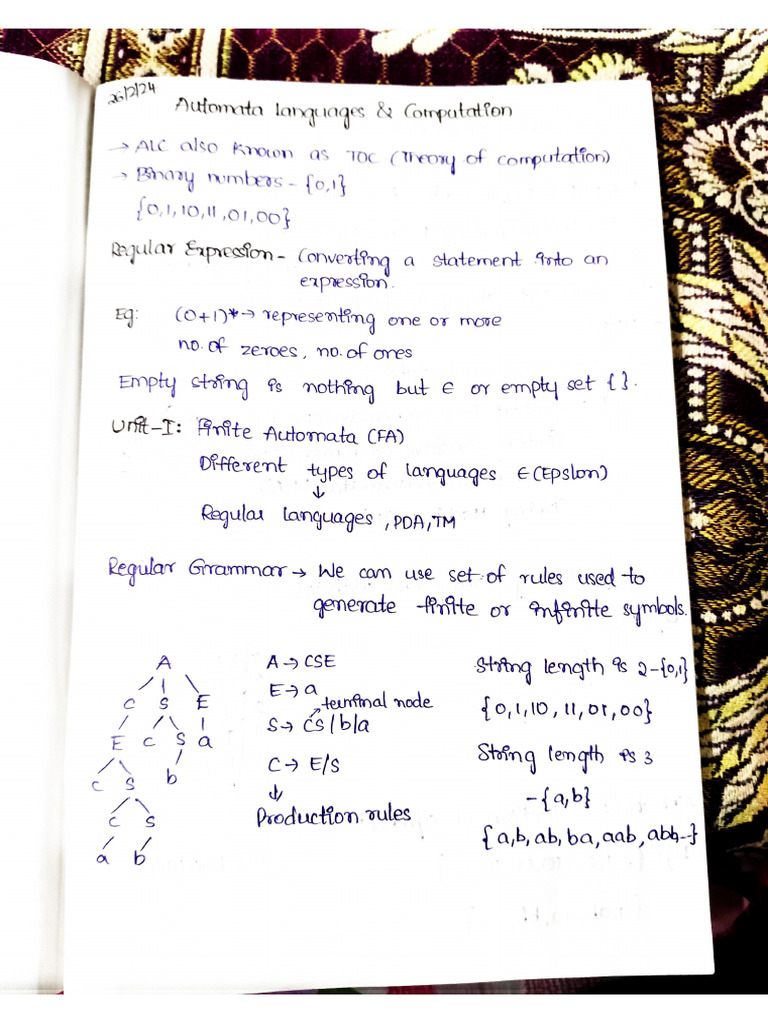 26/2/24
Automata Languages & Computation
→ ALC also known as TOC (Theory of computation)
→ Binary numbers - {0,1}
{0,1,10,11,01,00}
Regular Expression - Converting a statement into an
expression.
Eg: (0+1)* → representing one or more
no. of zeroes, no. of ones
Empty string is nothing but ∈ or empty set { }.
Unit-I: Finite Automata (FA)
Different types of languages ∈ (Epslon)
↓
Regular languages, PDA, TM
Regular Grammar → We can use set of rules used to
generate finite or infinite symbols.
A
C S E
E C S a
C S b
C S
a b
A → CSE
E → a
terminal node
S → CS/b/a
C → E/S
↓
Production rules
String length is 2 - {0,1}
{0,1,10,11,01,00}
String length is 3
- {a,b}
{a,b,ab,ba,aab,abb--}